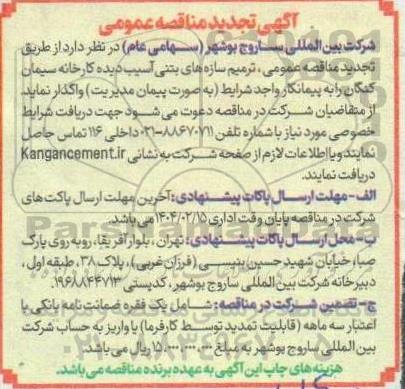 آگهی تجدید مناقصه عمومی
شرکت بین المللی ساروج بوشهر (سهامی عام) در نظر دارد از طریق
تجدید مناقصه عمومی، ترمیم سازه های بتنی آسیب دیده کارخانه سیمان
کنگان را به پیمانکار واجد شرایط (به صورت پیمان مدیریت) واگذار نماید.
از متقاضیان شرکت در مناقصه دعوت می شود جهت دریافت شرایط
خصوصی مورد نیاز با شماره تلفن ۸۸۶۷۰۷۱۱-۰۲۱ داخلی ۱۱۶ تماس حاصل
نمایند ویا اطلاعات لازم از صفحه شرکت به نشانی Kangancement.ir
دریافت نمایند.
الف- مهلت ارسال پاکات پیشنهادی: آخرین مهلت ارسال پاکت های
شرکت در مناقصه پایان وقت اداری ۱۴۰۴/۰۲/۱۵ می باشد.
ب- محل ارسال پاکات پیشنهادی: تهران، بلوار آفریقا، روبه روی پارک
صبا، خیابان شهید حسین بنیسی (فرزان غربی)، پلاک ۳۸، طبقه اول،
دبیرخانه شرکت بین المللی ساروج بوشهر، کدپستی ۱۹۶۸۸۴۴۷۱۳.
ج- تضمین شرکت در مناقصه: شامل یک فقره ضمانت نامه بانکی با
اعتبار سه ماهه (قابلیت تمدید توسط کارفرما) یا واریز به حساب شرکت
بین المللی ساروج بوشهر به مبلغ ۱۵.۰۰۰.۰۰۰.۰۰۰ ریال می باشد.
هزینه های چاپ این آگهی به عهده برنده مناقصه می باشد.